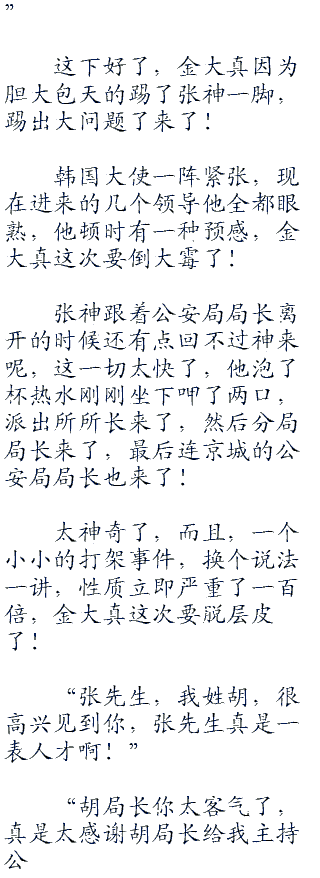 ”
这下好了，金大真因为
胆大包天的踢了张神一脚，
踢出大问题了来了！
韩国大使一阵紧张，现
在进来的几个领导他全都眼
熟，他顿时有一种预感，金
大真这次要倒大霉了！
张神跟着公安局局长离
开的时候还有点回不过神来
呢，这一切太快了，他泡了
杯热水刚刚坐下呷了两口，
派出所所长来了，然后分局
局长来了，最后连京城的公
安局局长也来了！
太神奇了，而且，一个
小小的打架事件，换个说法
一讲，性质立即严重了一百
倍，金大真这次要脱层皮
了！
“张先生，我姓胡，很
高兴见到你，张先生真是一
表人才啊！”
“胡局长你太客气了，
真是太感谢胡局长给我主持
公